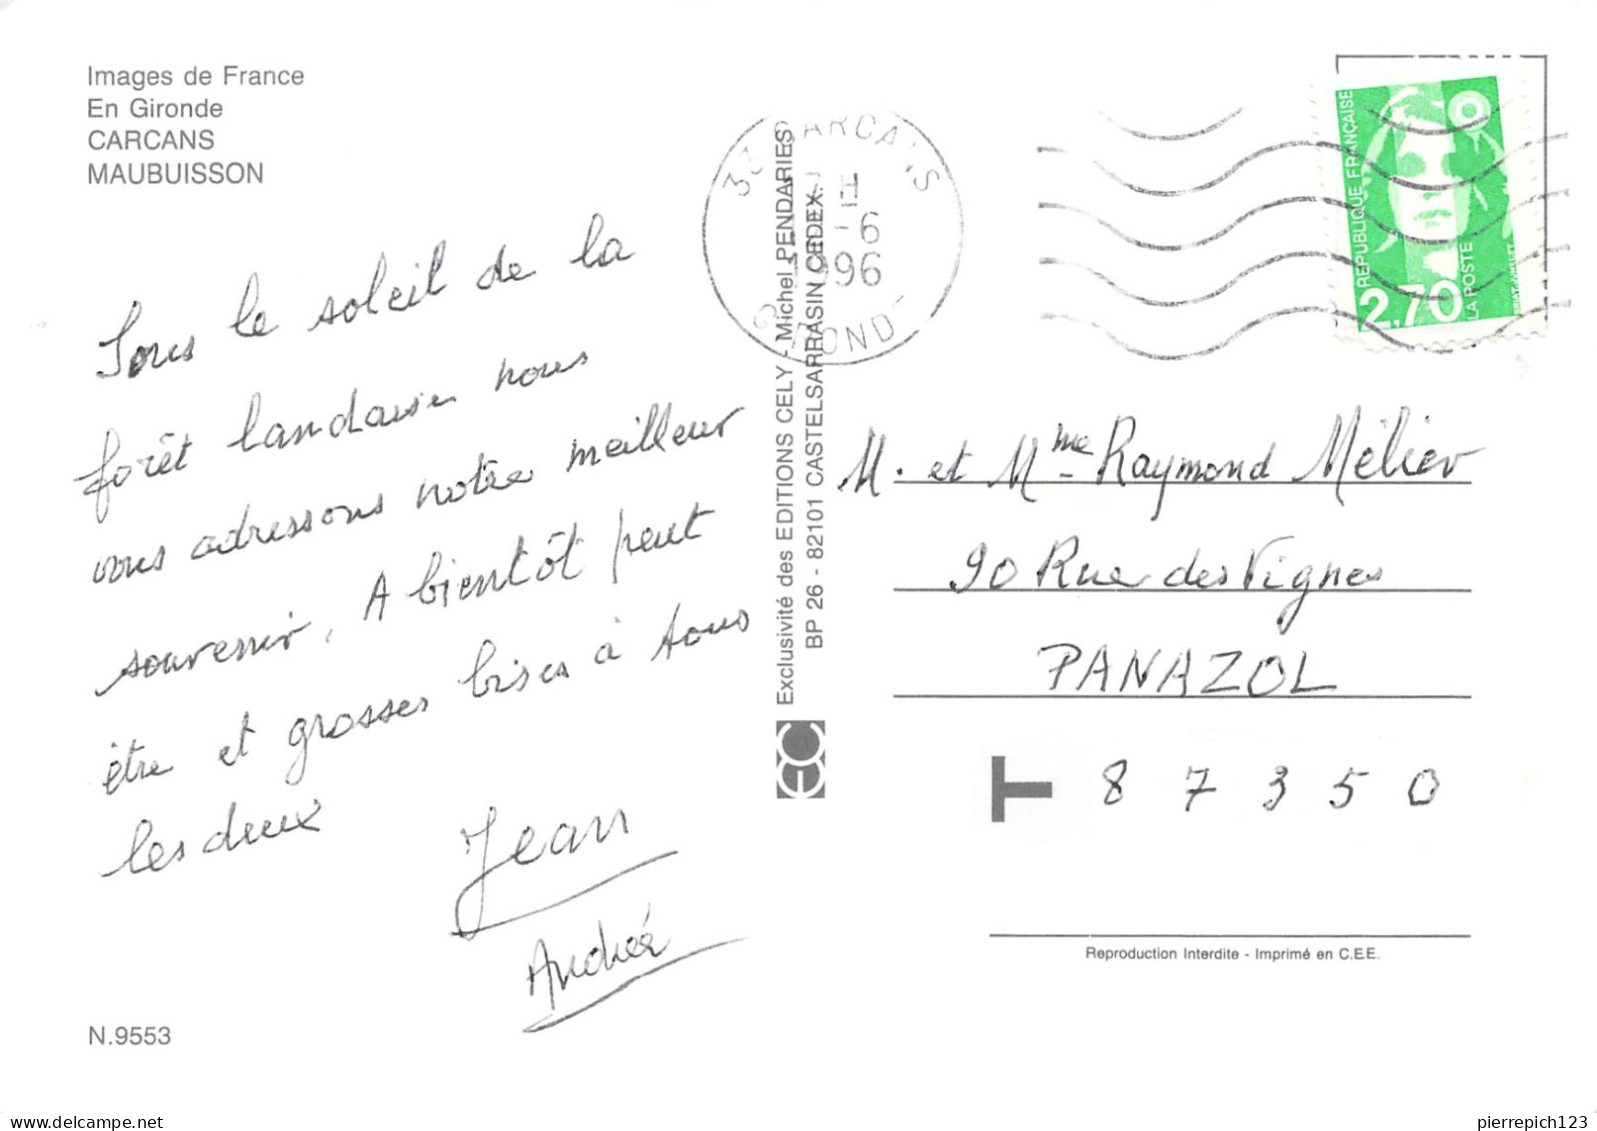 Images de France
En Gironde
CARCANS
MAUBUISSON
Sous le soleil de la
forêt landaise nous
vous adressons notre meilleur
souvenir. A bientôt peut
être et grosses bises à tous
les deux
Jean
Andrée
N.9553
Exclusivité des EDITIONS CELY - Michel PENDARIES
BP 26 - 82101 CASTELSARRASIN CEDEX
33 CARCANS
H
-6
1996
GIRONDE
REPUBLIQUE FRANÇAISE
2,70
LA POSTE
M. et Mme Raymond Mélier
90 Rue des Vignes
PANAZOL
T 87350
Reproduction Interdite - Imprimé en C.E.E.
pierrepich123